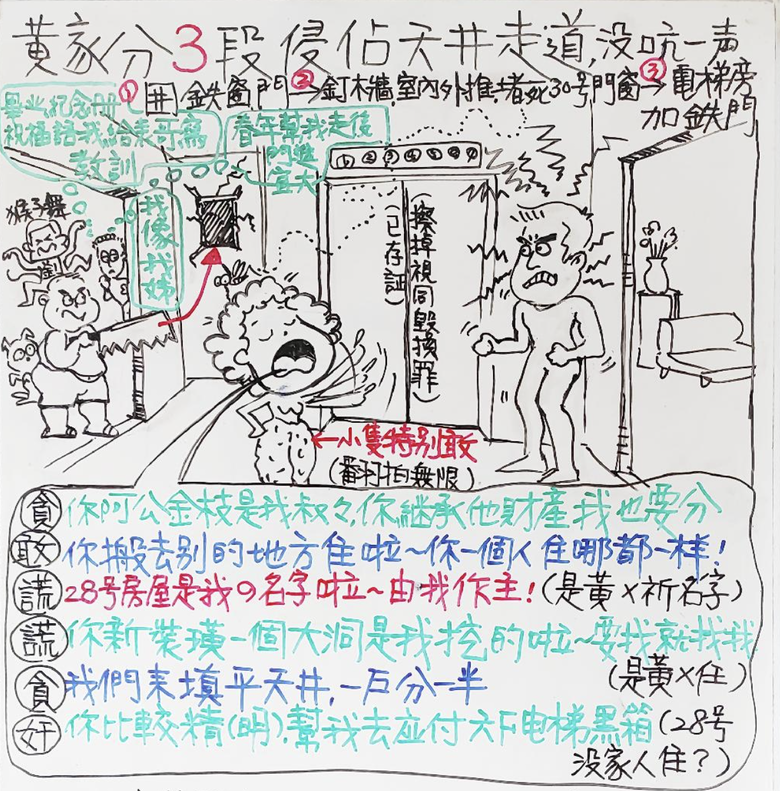 黃家分3段侵佔天井走道,没吭一声
①井/鉄窗門②→釘木牆,室內外推,堵死30号門窗③→電梯旁
加鉄門
畢业紀念册
祝福語我給表哥寫
教訓
春年幫我走後
門進
宜大
我像我姊
猴子舞
①②③④⑤⑥⑦
(擦掉視同毀損罪)
(已存証)
←小隻特別敢
(審判拍無限)
貪 你阿公金枝是我叔々,你継承他財產我也要分
敢 你搬去别的地方住啦~你一個人住哪都一样!
謊 28号房屋是我の名字啦~由我作主!(是黃x祈名字)
謊 你新裝璜一個大洞是我挖的啦~要找就找我
(是黃x任)
貪 我們来填平天井,一戶分一半
奸 你比較精(明),幫我去应付六F电梯黑箱(28号
没家人住?)